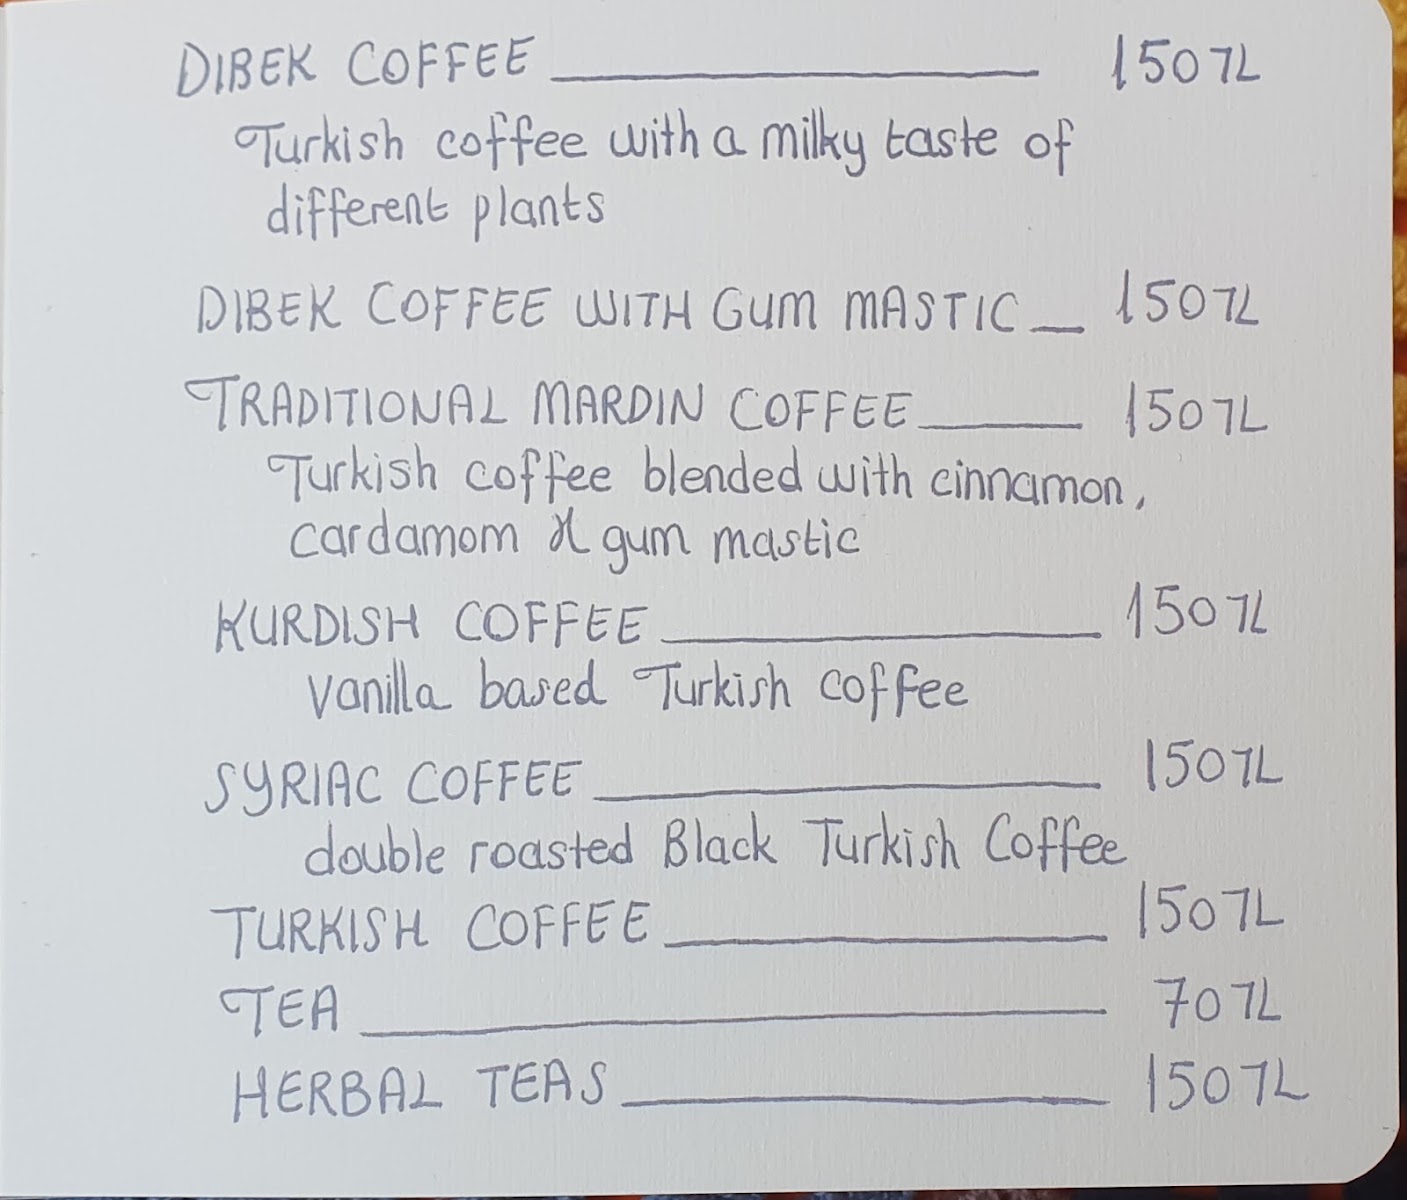 DIBEK COFFEE ____ 150 TL
Turkish coffee with a milky taste of
different plants
DIBEK COFFEE WITH GUM MASTIC __ 150 TL
TRADITIONAL MARDIN COFFEE ____ 150 TL
Turkish coffee blended with cinnamon,
cardamom & gum mastic
KURDISH COFFEE ____ 150 TL
vanilla based Turkish coffee
SYRIAC COFFEE ____ 150 TL
double roasted Black Turkish Coffee
TURKISH COFFEE ____ 150 TL
TEA ____ 70 TL
HERBAL TEAS ____ 150 TL